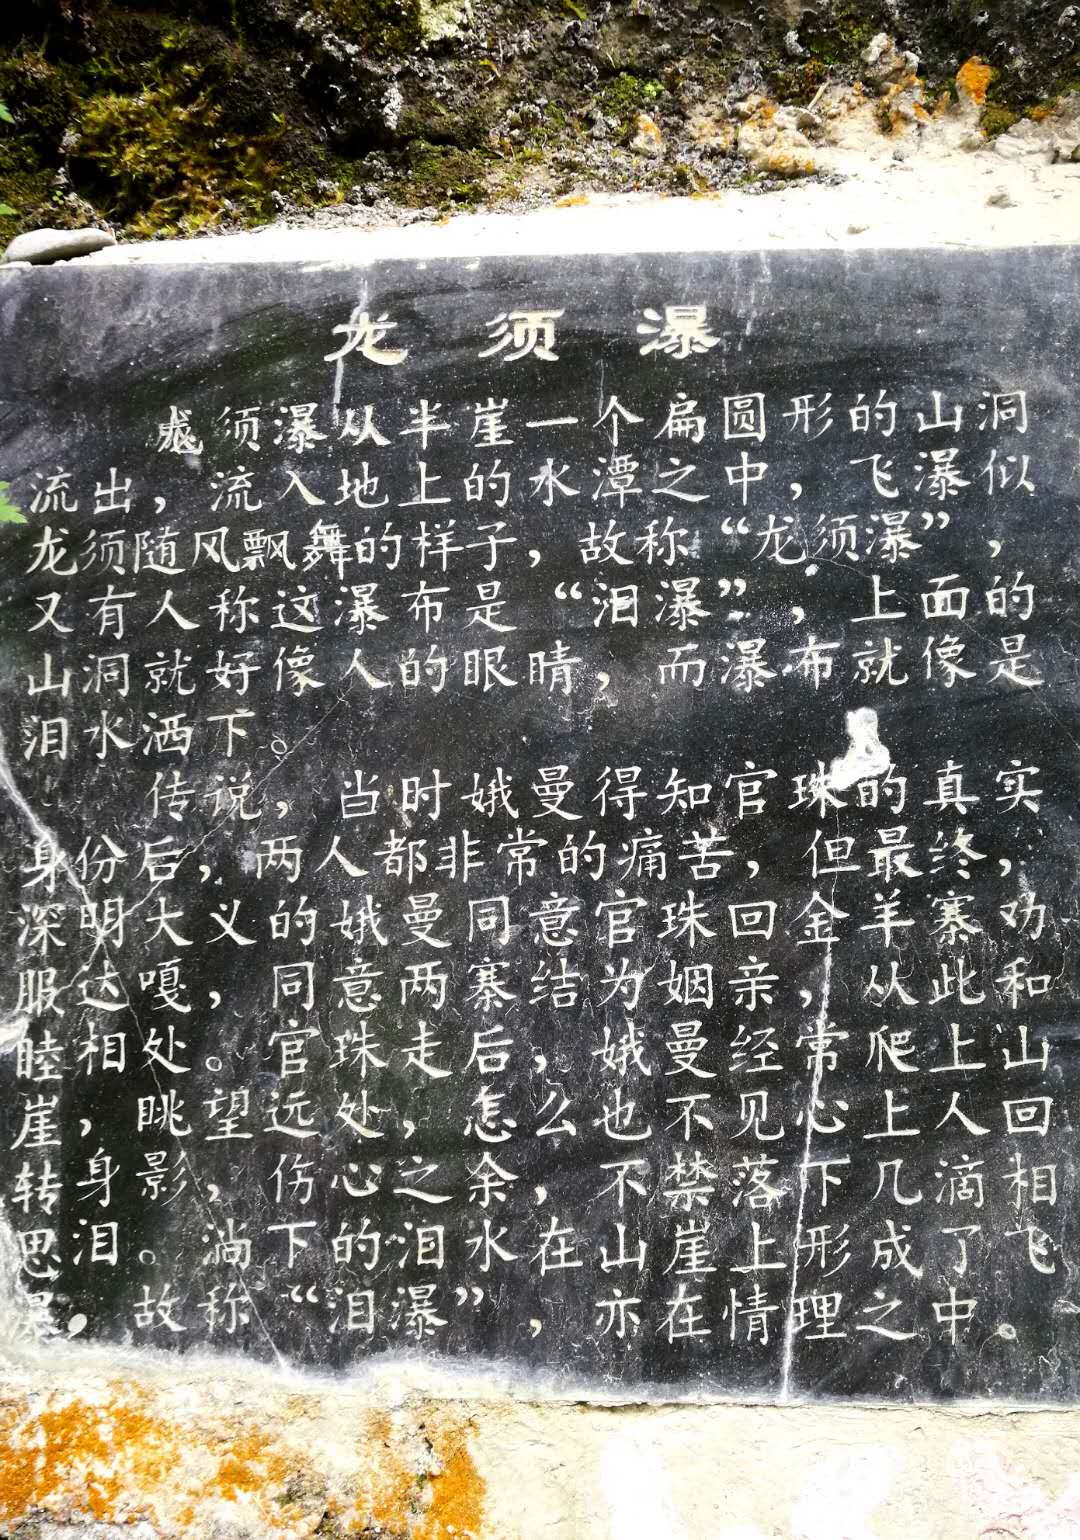 龙须瀑
龙须瀑从半崖一个扁圆形的山洞
流出，流入地上的水潭之中，飞瀑似
龙须随风飘舞的样子，故称“龙须瀑”，
又有人称这瀑布是“泪瀑”，上面的
山洞就好像人的眼晴，而瀑布就像是
泪水洒下。
传说，当时娥曼得知官珠的真实
身份后，两人都非常的痛苦，但最终，
深明大义的娥曼同意官珠回金羊寨劝
服达嘎，同意两寨结为姻亲，从此和
睦相处。官珠走后，娥曼经常爬上山
崖，眺望远处，怎么也不见心上人回
转身影，伤心之余，不禁落下几滴相
思泪。淌下的泪水在山崖上形成了飞
瀑。故称“泪瀑”，亦在情理之中。